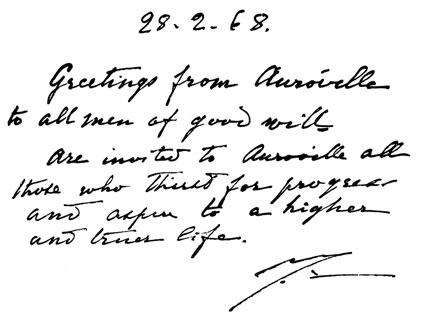 28-2-68.
Greetings from Auroville
to all men of good will.
Are invited to Auroville all
those who thirst for progress
and aspire to a higher
and truer life.